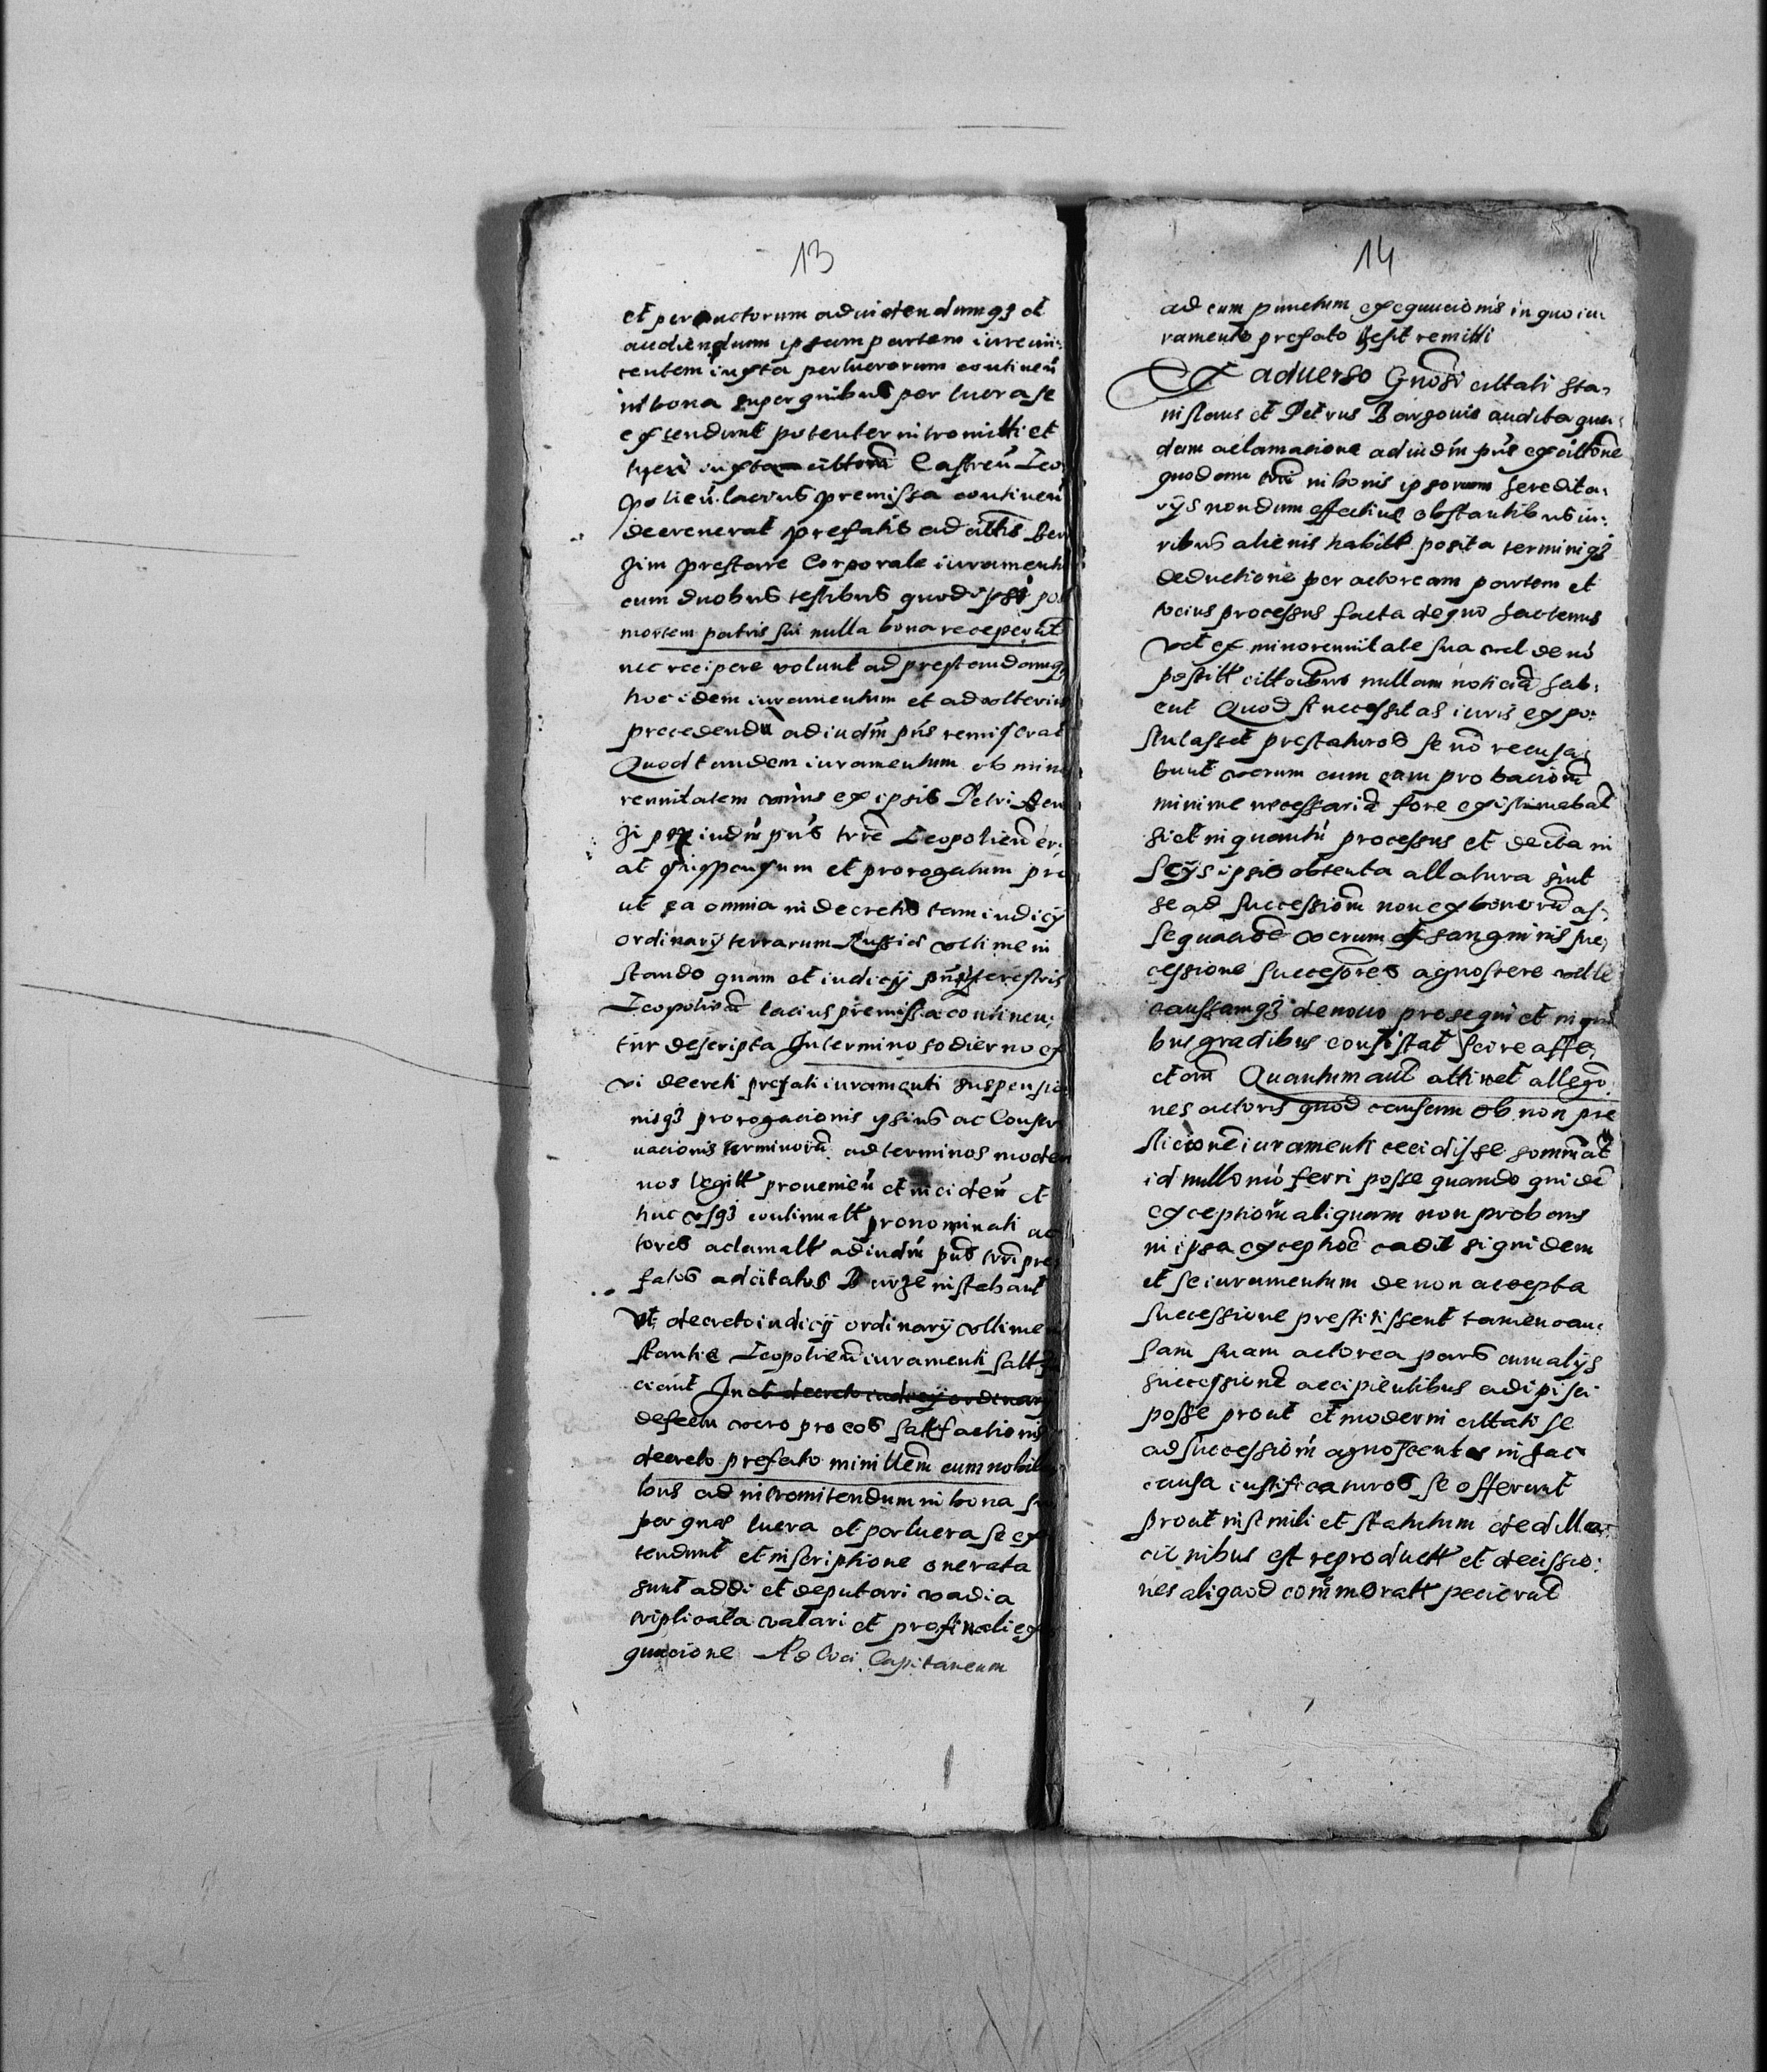 13
et per actorum ad videndumq3 et
audiendum ipsam partem iurevin:
centem iuxta perlucrorum continen
in bona super quibus per lucra se
extendunt potenter intromitti et
iuxta Castren Leo
polien. lacius premissa continen
decrenerat prefatis adcittis Ber
zim prestare Corporale iurament
cum duobus testibus quod ipsi pos
mortem patris sui nulla bona receperut
nec recipere volunt ad prestandumq3
hoc idem iuramentum et ad vlteriu
procedendu ad iudm pns remiserat
Quod tandem iuramentum ob mino
rennitatem vnius ex ipsis Petri
iudm pns trre Leopolien er:
at suspensum et prorogatum pro
ut ea omnia in decretis tam iudicij
ordinarij terrarum Russie vltime in
stando quam et iudicij pntis terestris
Leopolien lacius premissa continen:
tur descripta In termino hodierno ex
vi decreti prefati iuramenti suspensio
nisq3 prorogacionis ipsius ac Conser
uacionis terminoru ad terminos moder
nos legitt prouenien et inciden et
huc vsq3 continuatt pronominati ac
tores aclamatt ad iudm pns trri pre
fatos adcitatos Burze instebant
Vt decreto iudicij ordinarij vltime in
stantie Leopolien iuramenti satt
ciant In ob decreto iudicij ordinarij
defectu vero pro eos sattfactionis
decreto prefato ministlem cum nobili
bus ad intromitendum in bona su
per quas lucra et perlucra se ex
tendunt et inscriptione onerata
sunt addi et deputari vadia
triplicata vallari et pro finali exe
quucione Ad loci Capitaneum
14
ad eum punctum exequucionis in quo iu
ramento prefato remitti
Ex aduerso Gnosi cittati Sta,
nislaus et Petrus audita qua:
dam aclamacione ad iudm pns ex cittone
quodam in bonis ipsorum heredita,
rijs nondum effectiue obstantibus iu:
ribus alienis habitt posita terminiq3
deductione per actoream partem et
tocius processus facta de quo hactenus
vel ex minorennitate sua vel de no
positt cittocibus nullam noticia hab:
ent Quod si necessitas iuris expo:
stulasset prestaturos se no recusa:
bunt verum cum eam probaciom
minime necessaria fore existimabat
si et in quantu processus et decta in
scijs ipsis obtenta allatura sint
se ad successiom non ex bonoru as:
sequucioe verum ex sanguinis suc,
cessione successores agnoscere velle
caussamq3 denouo prosequi et in qui
bus gradibus consistat scire affe,
ctam Quantum aut attinet allego
nes actoris quod causam ob non pre
sticione iuramenti cecidisse sommat
id nullo mo ferri posse quando quide
exceptiom aliquam non probans
in ipsa exceptioe cadit siquidem
et se iuramentum de non accepta
successione prestitissent tamen cau:
sam suam actorea pars cum alijs
successione accipientibus adipisci
posse prout et moderni cittati se
ad successiom agnoscentes in hac
causa iustificaturos se offerunt
Prout insimili et statutum de dilla:
cionibus est reproductt et decissio:
nes aliquod commeratt pecierut